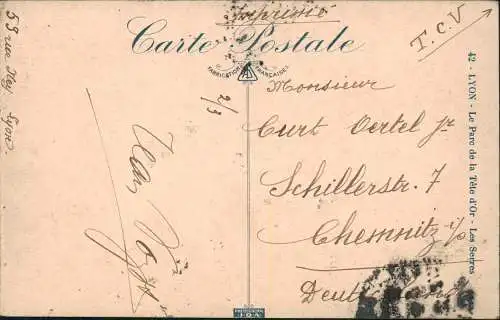 Imprimé
T.C.V
Carte Postale
FABRICATION FRANÇAISE
53 rue Ney Lyon.
2/3
Monsieur
Curt Oertel jr
Schillerstr. 7
Chemnitz i/s
42 - LYON - Le Parc de la Tête d'Or - Les Serres